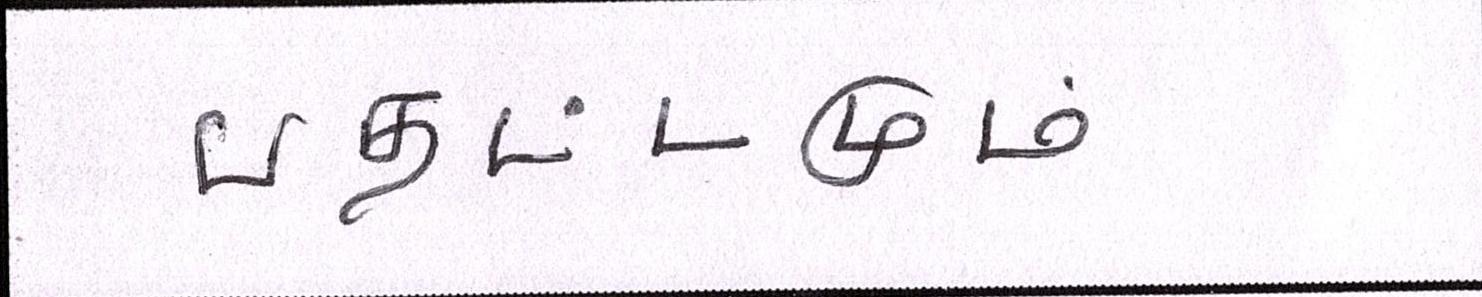 பதட்டமும்